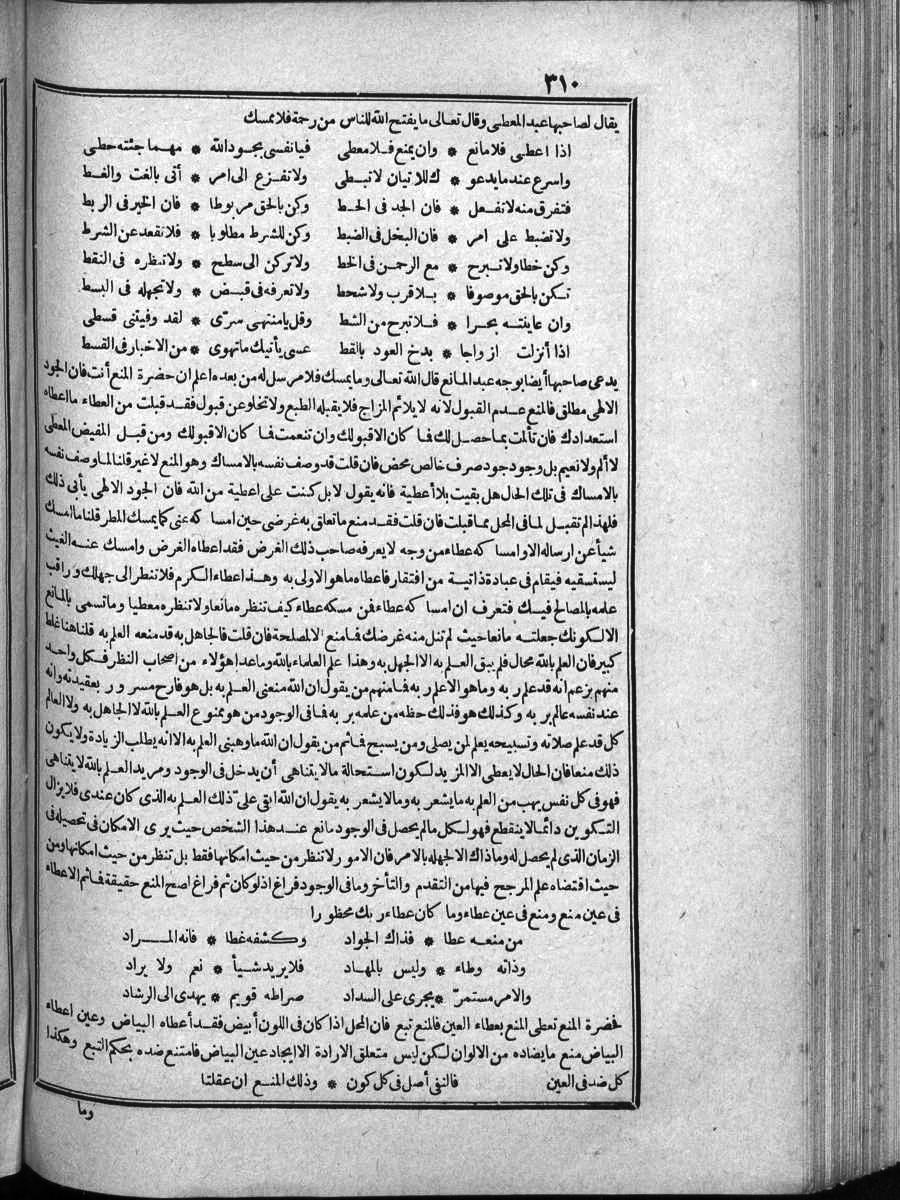 ٣١٠
يقال لصاحبها عبد المعطى وقال تعالى ما يفتح الله للناس من رحمة فلا ممسك
اذا اعطى فلا مانع * وان يمنع فلا معطى فيا نفسى بجود الله * مهما جئته حطى
واسرع عند ما يدعو * ك للاتيان لا تبطى ولا تفزع الى امر * أتى بالغت والغط
فتفرق منه لا تفعل * فان الجد فى الحط وكن بالحق مربوطا * فان الخير فى الربط
ولا تضبط على امر * فان البخل فى الضبط وكن للشرط مطلوبا * فلا تقعد عن الشرط
وكن خطا ولا تبرح * مع الرحمن فى الخط ولا تركن الى سطح * ولا تنظره فى النقط
تكن بالحق موصوفا * بلا قرب ولا شحط ولا تعرفه فى قبض * ولا تجهله فى البسط
وان عاينته بحرا * فلا تبرح من الشط وقل يا منتهى سرّى * لقد وفيتنى قسطى
اذا أنزلت ازواجا * بدخ العود بالقط عسى يأتيك ما تهوى * من الاخبار فى القسط
يدعى صاحبها أيضا بوجه عبد المانع قال الله تعالى وما يمسك فلا مرسل له من بعده اعلم ان حضرة المنع أنت فان الجود
الالهى مطلق فالمنع عدم القبول لانه لا يلائم المزاج فلا يقبله الطبع ولا تخلو عن قبول فقد قبلت من العطاء ما اعطاه
استعدادك فان تألمت بما حصل لك فما كان الا قبولك وان تنعمت فما كان الا قبولك ومن قبل المفيض المعطى
لا ألم ولا نعيم بل وجود جود صرف خالص محض فان قلت قد وصف نفسه بالامساك وهو المنع لا غير قلنا لما وصف نفسه
بالامساك فى تلك الحال هل بقيت بلا أعطية فانه يقول لا بل كنت على اعطية من الله فان الجود الالهى يأبى ذلك
فلهذا لم تقبل لما فى المحل مما قبلت فان قلت فقد منع ما تعلق به غرضى حين امساكه عنى كما يمسك المطر قلنا ما امسك
شيأ عن ارساله الا وامساكه عطاء من وجه لا يعرفه صاحب ذلك الغرض فقد اعطاه الغرض وامسك عنه الغيث
ليستسقيه فيقام فى عبادة ذاتية من افتقار فاعطاه ما هو الاولى به وهذا عطاء الكرم فلا تنظر الى جهلك وراقب
علمه بالمصالح فيك فتعرف ان امساكه عطاء فمن مسكه عطاء كيف تنظره مانعا ولا تنظره معطيا وما تسمى بالمانع
الا لكونك جعلته مانعا حيث لم تنل منه غرضك فما منع الا لمصلحة فان قلت فالجاهل به قد منعه العلم به قلنا هنا غلط
كبير فان العلم بالله محال فلم يبق العلم به الا الجهل به وهذا علم العلماء بالله وما عدا هؤلاء من اصحاب النظر فكل واحد
منهم يزعم انه قد علم ربه وما هو الا علم ربه فما منهم من يقول ان الله منعنى العلم به بل هو فارح مسرور بعقيدته وانه
عند نفسه عالم بربه وكذلك هو فذلك حظه من علمه بربه فما فى الوجود من هو ممنوع العلم بالله لا الجاهل به ولا العالم
كل قد علم صلاته وتسبيحه يعلم لمن يصلى ومن يسبح فما ثم من يقول ان الله ما وهبنى العلم به الا انه يطلب الزيادة ولا يكون
ذلك منعا فان الحال لا يعطى الا المزيد لكون استحالة ما لا يتناهى أن يدخل فى الوجود ومريد العلم بالله لا يتناهى
فهو فى كل نفس يهب من العلم به ما يشعر به وما لا يشعر به يقول ان الله ابقى علىّ ذلك العلم به الذى كان عندى فلا يزال
التكوين دائما لا ينقطع فهو لكل ما لم يحصل فى الوجود مانع عند هذا الشخص حيث يرى الامكان فى تحصيله فى
الزمان الذى لم يحصل له وما ذاك الا لجهله بالامر فان الامور لا تنظر من حيث امكانها فقط بل تنظر من حيث امكانها ومن
حيث اقتضاه علم المرجح فيها من التقدم والتأخر وما فى الوجود فراغ اذ لو كان ثم فراغ اصح المنع حقيقة فما ثم الا عطاء
فى عين منع ومنع فى عين عطاء وما كان عطاء ربك محظورا
من منعه عطا * فذاك الجواد وكشفه غطا * فانه المراد
وذاته وطاء * وليس بالمهاد فلا يريد شيأ * نعم ولا يراد
والامر مستمرّ * يجرى على السداد صراطه قويم * يهدى الى الرشاد
فحضرة المنع تعطى المنع بعطاء العين فالمنع تبع فان المحل اذا كان فى اللون أبيض فقد أعطاه البياض وعين اعطاء
البياض منع ما يضاده من الالوان لكن ليس متعلق الارادة الا ايجاد عين البياض فامتنع ضده بحكم التبع وهكذا
كل ضد فى العين فالنفى أصل فى كل كون * وذلك المنع ان عقلتا
وما